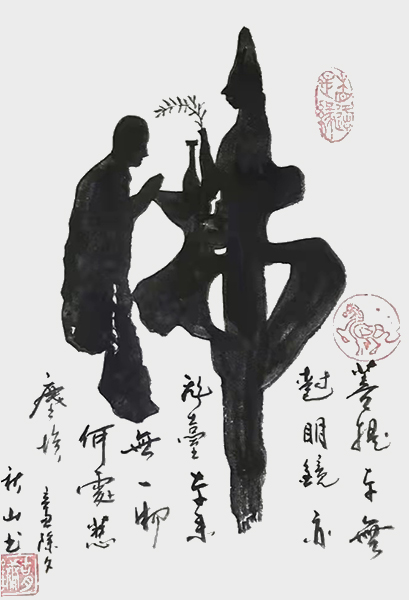 佛
菩提本無
樹明鏡亦
非臺本来
無一物
何處惹
塵埃
辛丑除夕
秋山书